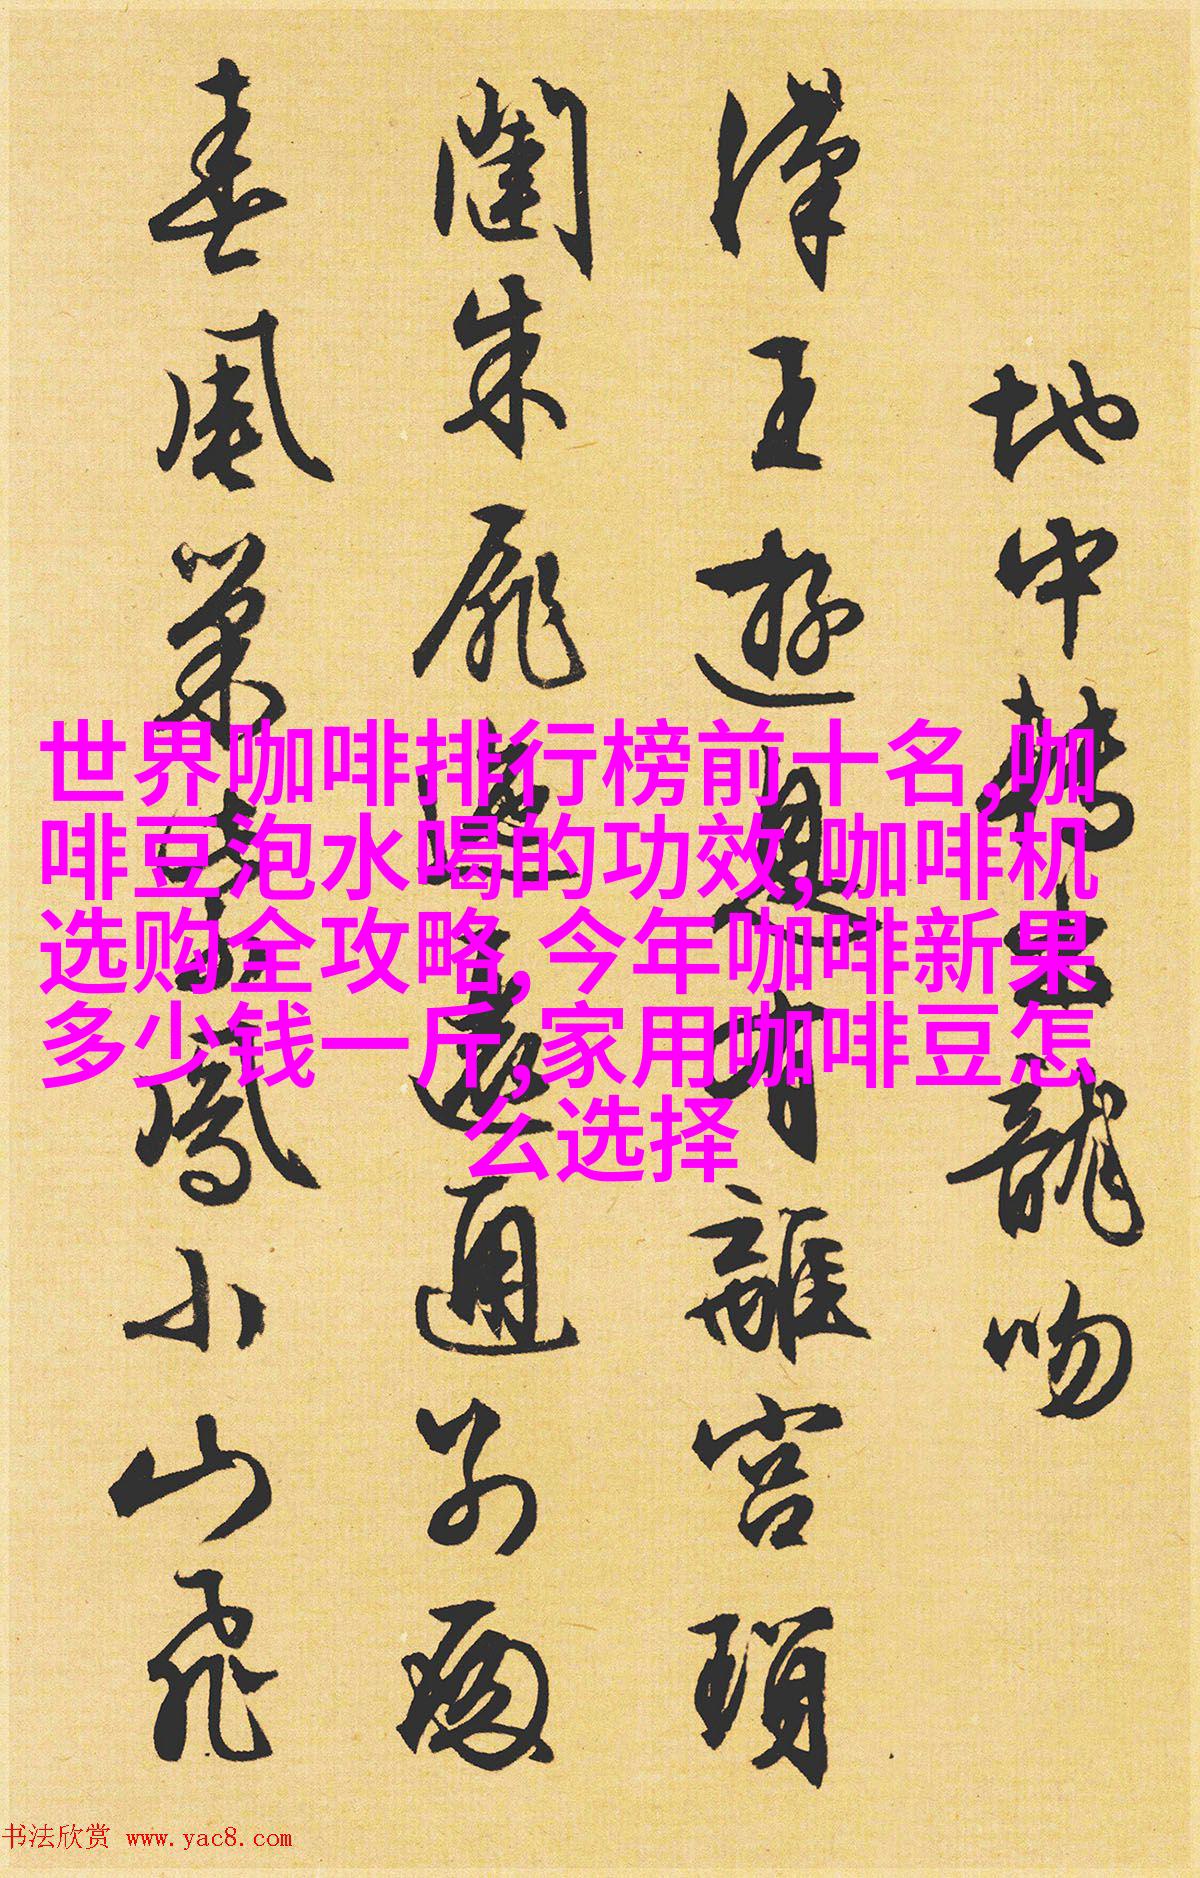 地中轉上龍吻
漢王遊息有離宮瑣
闥朱扉迤邐通別殿
春風巢紫鳳小山飛
世界咖啡排行榜前十名,咖
啡豆泡水喝的功效,咖啡机
选购全攻略,今年咖啡新果
多少钱一斤,家用咖啡豆怎
么选择
书法欣赏 www.yac8.com